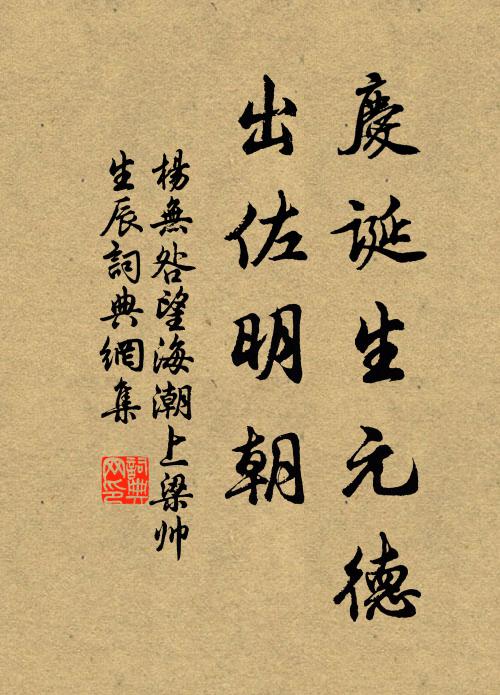 慶誕生元德
出佐明朝
楊無咎望海潮上梁帅
生辰詞典網集
詞典
网印